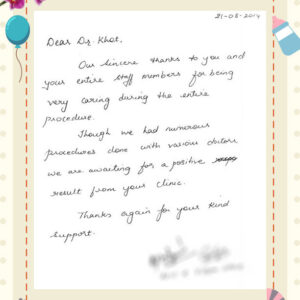 21-08-2014
Dear Dr. Khot,
Our sincere thanks to you and
your entire staff members for being
very caring during the entire
procedure.
Though we had numerous
procedures done with various doctors
we are awaiting for a positive
result from your clinic.
Thanks again for your kind
support.